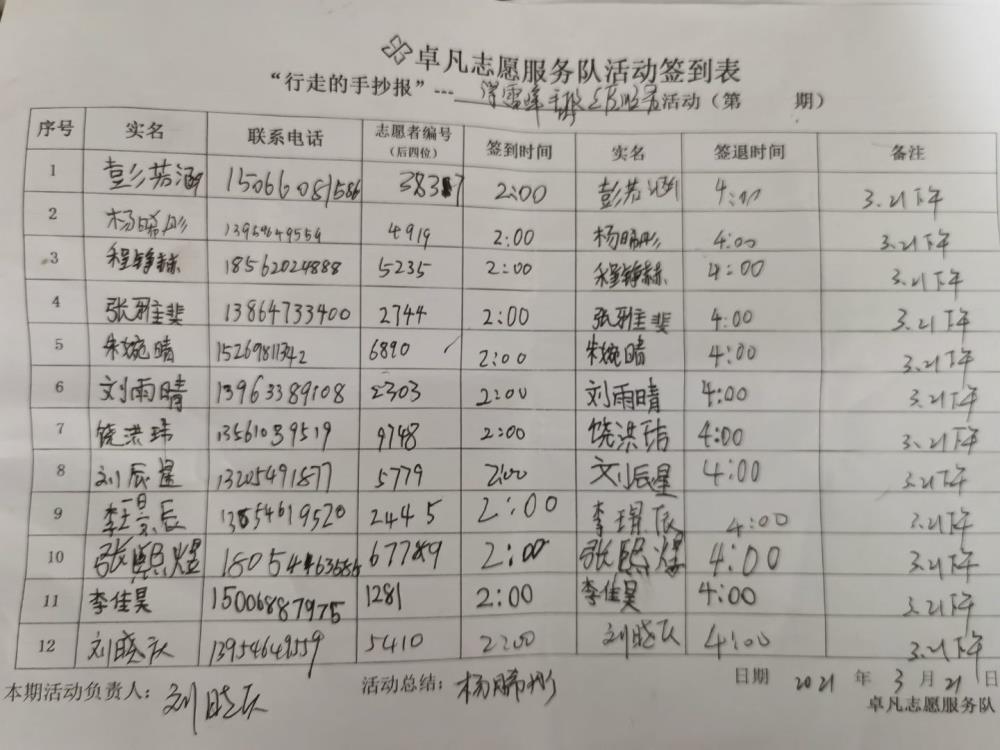 卓凡志愿服务队活动签到表
“行走的手抄报”---学雷锋 活动（第 期）
序号 实名 联系电话 志愿者编号（后四位） 签到时间 实名 签退时间 备注
1 彭芳涵 15066081586 3837 2:00 彭芳涵 4:00 3.21下午
2 杨晞彤 13969649559 4919 2:00 杨晞彤 4:00 3.21下午
3 程铮赫 18562024888 5235 2:00 程铮赫 4:00 3.21下午
4 张雅斐 13864733400 2744 2:00 张雅斐 4:00 3.21下午
5 朱婉晴 15269811342 6890 2:00 朱婉晴 4:00 3.21下午
6 刘雨晴 13963389108 2303 2:00 刘雨晴 4:00 3.21下午
7 饶洪玮 13561039519 9748 2:00 饶洪 4:00 3.21下午
8 刘辰星 13205491877 5779 2:00 刘辰星 4:00 3.21下午
9 李璟辰 13854619520 2445 2:00 李璟辰 4:00 3.21下午
10 张熙煜 2:00 张熙煜 4:00 3.21下午
11 李佳昊 15006887975 1281 2:00 李佳昊 4:00 3.21下午
12 刘晓庆 13954649559 5410 2:00 刘晓庆 4:00 3.21下午
本期活动负责人：刘晓庆 活动总结：杨晞彤 日期 2021 年 3 月 21 日
卓凡志愿服务队